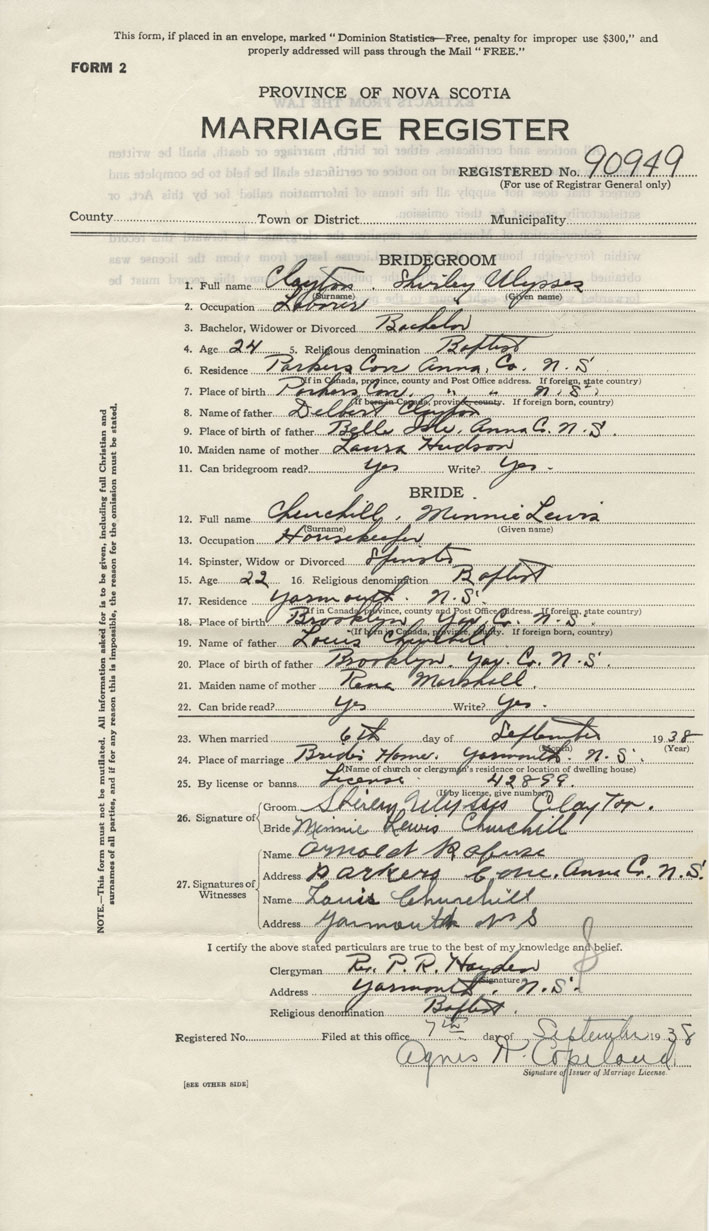 This form, if placed in an envelope, marked "Dominion Statistics—Free, penalty for improper use $300," and
properly addressed will pass through the Mail "FREE."
FORM 2
PROVINCE OF NOVA SCOTIA
MARRIAGE REGISTER
REGISTERED No. 90949
(For use of Registrar General only)
County Town or District Municipality
BRIDEGROOM
1. Full name Clayton, Shirley Ulysses
(Surname) (Given name)
2. Occupation Laborer
3. Bachelor, Widower or Divorced Bachelor
4. Age 24 5. Religious denomination Baptist
6. Residence Parkers Cove Anna. Co. N.S.
(If in Canada, province, county and Post Office address. If foreign, state country)
7. Place of birth Parkers Cove " " N.S.
(If born in Canada, province, county. If foreign born, country)
8. Name of father Delbert Clayton
9. Place of birth of father Belle Isle. Anna Co. N.S.
10. Maiden name of mother Laura Hudson
11. Can bridegroom read? Yes Write? Yes.
BRIDE
12. Full name Churchill, Minnie Lewis
(Surname) (Given name)
13. Occupation Housekeeper
14. Spinster, Widow or Divorced Spinster
15. Age 22 16. Religious denomination Baptist
17. Residence Yarmouth. N.S.
(If in Canada, province, county and Post Office address. If foreign, state country)
18. Place of birth Brooklyn Yar. Co. N.S.
(If born in Canada, province, county. If foreign born, country)
19. Name of father Louis Churchill
20. Place of birth of father Brooklyn. Yar. Co. N.S.
21. Maiden name of mother Rena Marshall.
22. Can bride read? Yes Write? Yes.
23. When married 6th day of September 1938
(Month) (Year)
24. Place of marriage Bride's Home. Yarmouth. N.S.
(Name of church or clergyman's residence or location of dwelling house)
25. By license or banns License 428-99.
(If by license, give number)
26. Signature of Groom Shirley Ulyssis Clayton.
Bride Minnie Lewis Churchill
27. Signatures of Witnesses
Name Arnold Rafuse
Address Parkers Cove. Anna Co. N.S.
Name Louis Churchill
Address Yarmouth N S
I certify the above stated particulars are true to the best of my knowledge and belief.
Clergyman Rev. P. R. Hayden
(Signature)
Address Yarmouth. N.S.
Religious denomination Baptist.
Registered No. Filed at this office 7th day of September 1938
Agnes H. Copeland
Signature of Issuer of Marriage License.
[SEE OTHER SIDE]
NOTE.—This form must not be mutilated. All information asked for is to be given, including full Christian and
surnames of all parties, and if for any reason this is impossible, the reason for the omission must be stated.